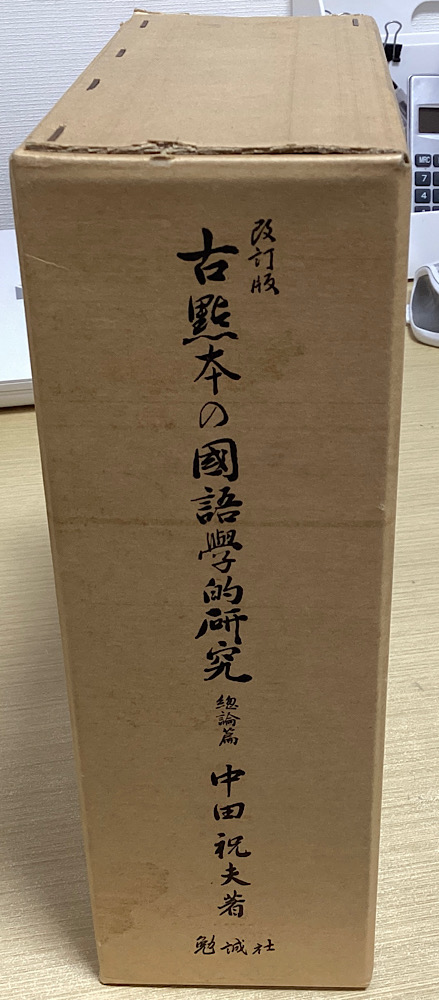 改訂版
古點本の國語學的研究
總論篇
中田祝夫著
勉誠社
MRC
7
4
1